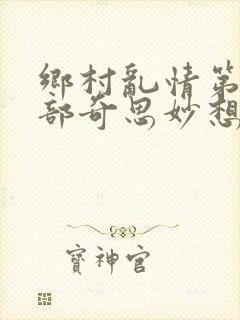 鄉村亂情第
部奇思妙想
寶神官